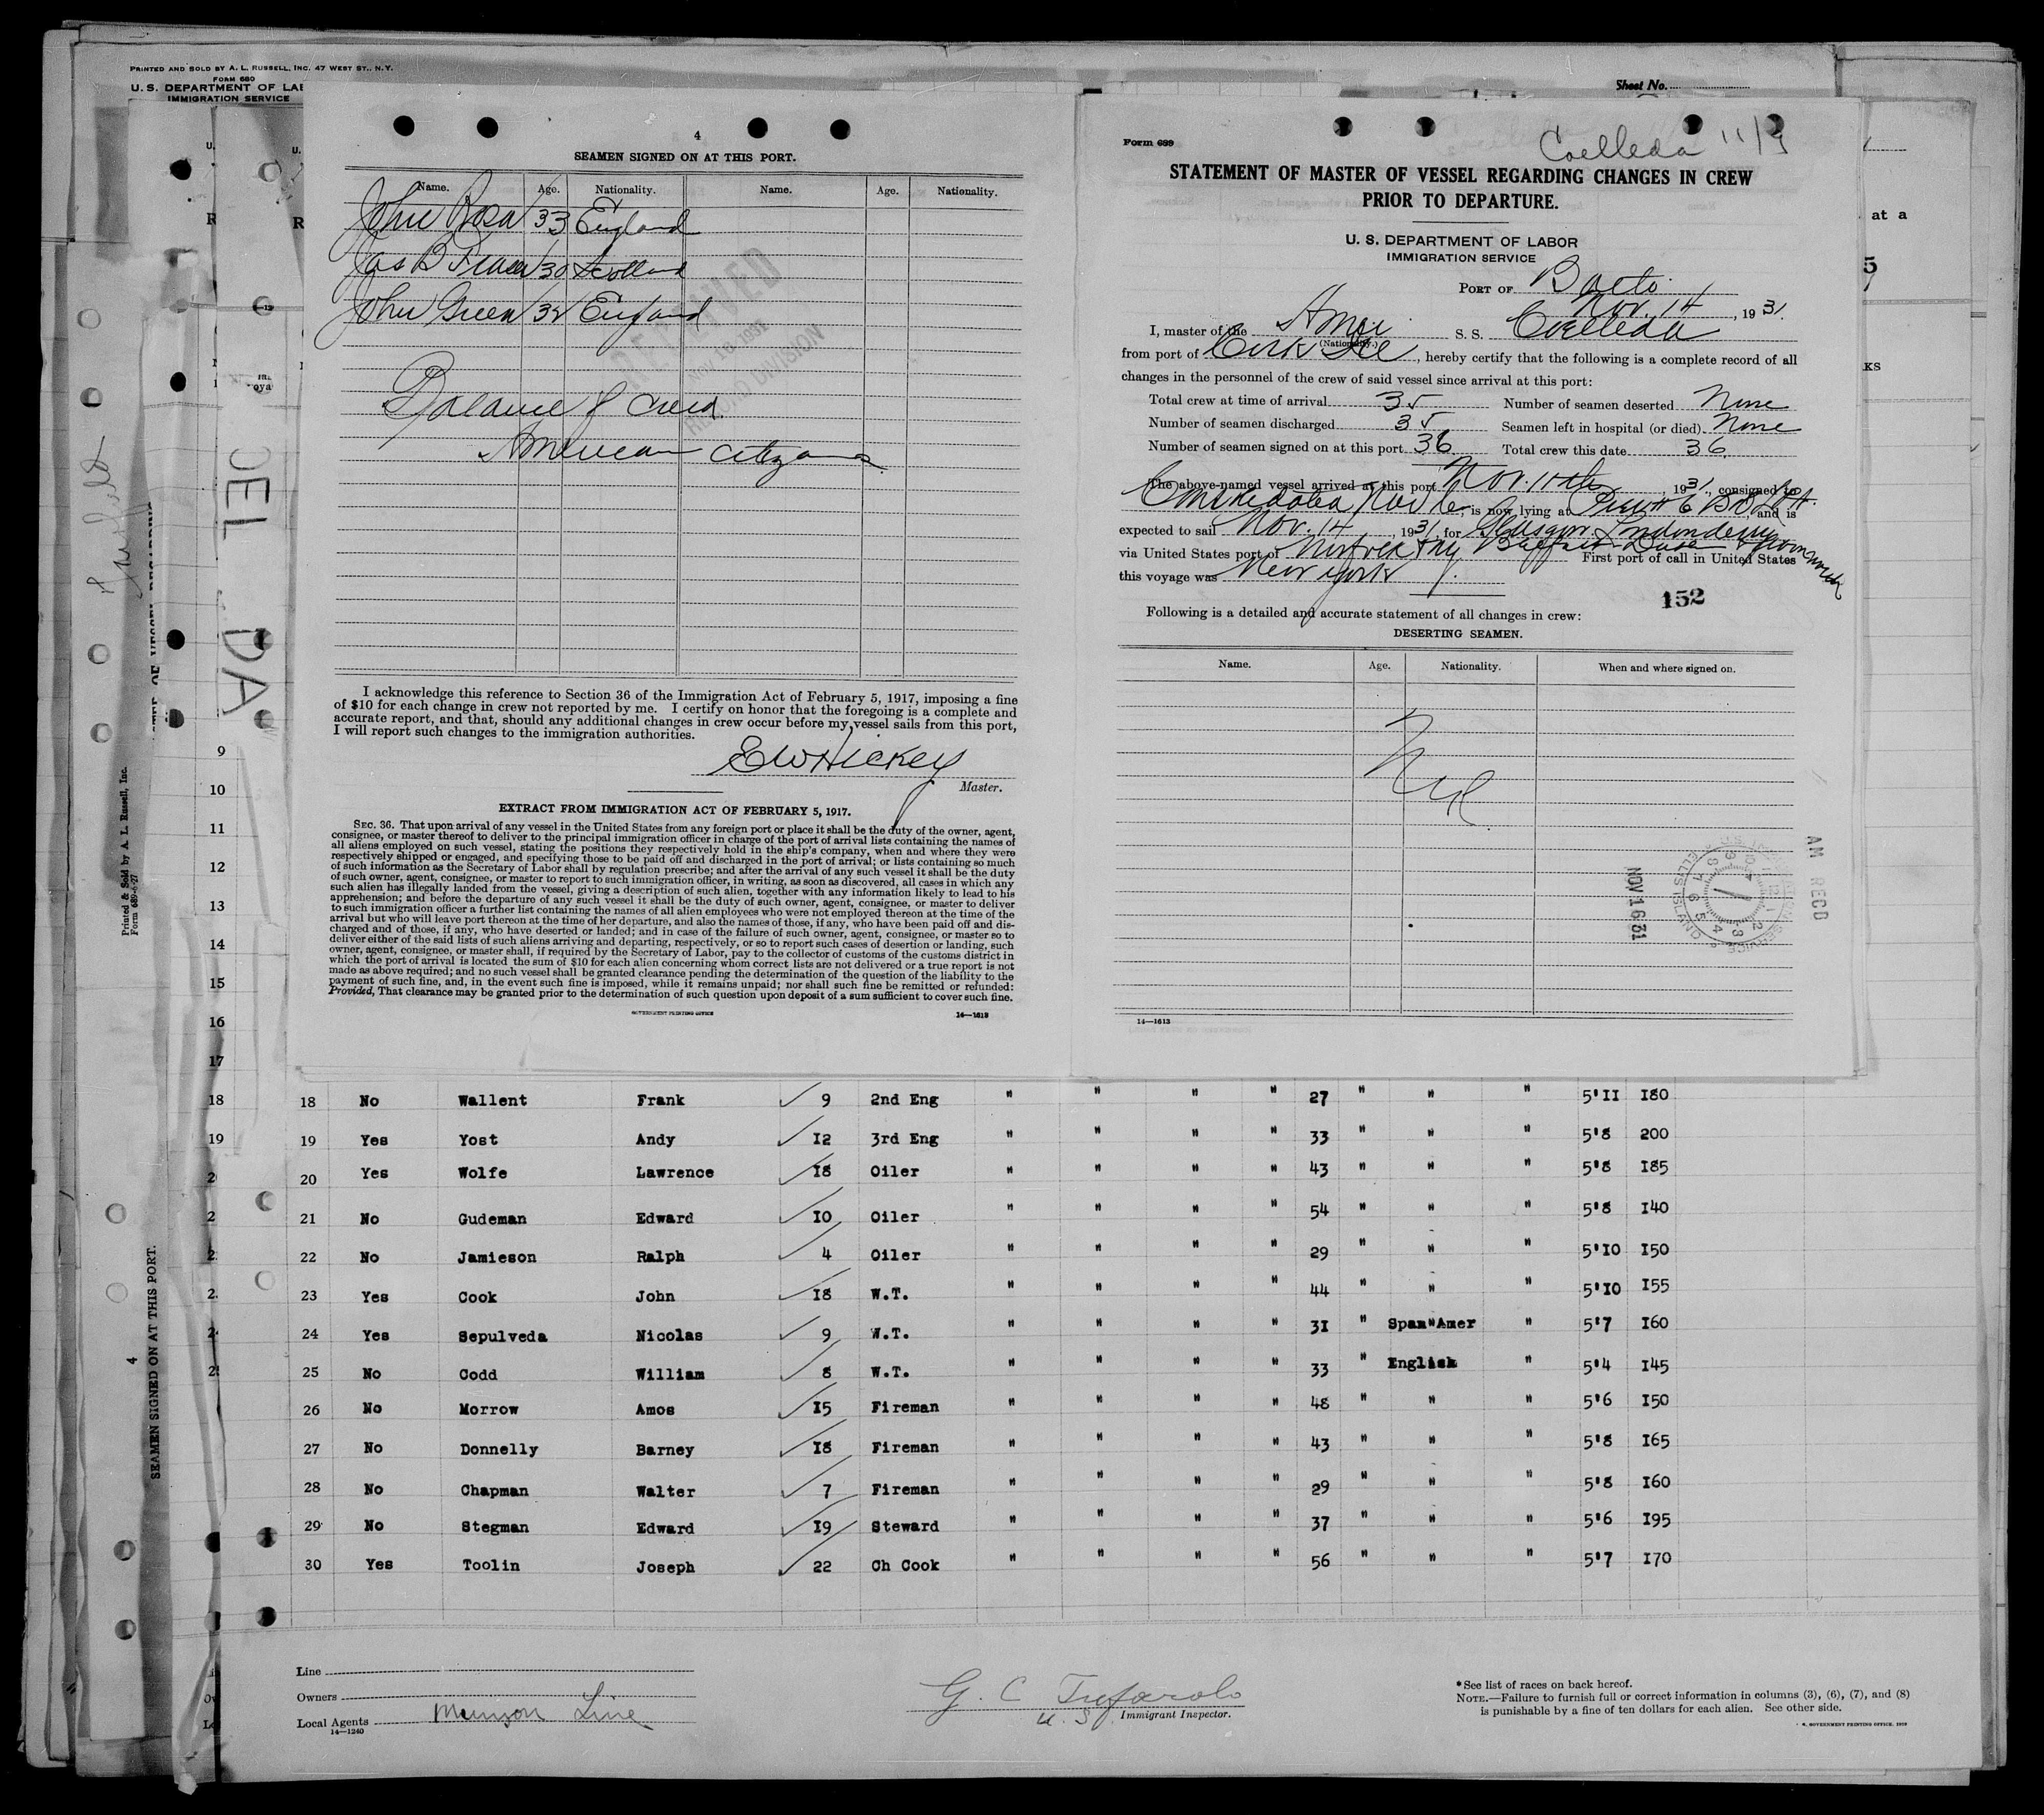 PRINTED AND SOLD BY A. L. RUSSELL, INC. 47 WEST ST., N.Y.
FORM 680
U. S. DEPARTMENT OF LA
IMMIGRATION SERVICE
Sheet No.
4
SEAMEN SIGNED ON AT THIS PORT.
Name. Age. Nationality. Name. Age. Nationality.
John 33 England
Jas 30 Scotland
John Green 32 England
RECEIVED
NOV 18 1931
RECORD DIVISION
Balance of Crew
American citizens
I acknowledge this reference to Section 36 of the Immigration Act of February 5, 1917, imposing a fine
of $10 for each change in crew not reported by me. I certify on honor that the foregoing is a complete and
accurate report, and that, should any additional changes in crew occur before my vessel sails from this port,
I will report such changes to the immigration authorities.
E W Hickey
Master.
EXTRACT FROM IMMIGRATION ACT OF FEBRUARY 5, 1917.
SEC. 36. That upon arrival of any vessel in the United States from any foreign port or place it shall be the duty of the owner, agent,
consignee, or master thereof to deliver to the principal immigration officer in charge of the port of arrival lists containing the names of
all aliens employed on such vessel, stating the positions they respectively hold in the ship's company, when and where they were
respectively shipped or engaged, and specifying those to be paid off and discharged in the port of arrival; or lists containing so much
of such information as the Secretary of Labor shall by regulation prescribe; and after the arrival of any such vessel it shall be the duty
of such owner, agent, consignee, or master to report to such immigration officer, in writing, as soon as discovered, all cases in which any
such alien has illegally landed from the vessel, giving a description of such alien, together with any information likely to lead to his
apprehension; and before the departure of any such vessel it shall be the duty of such owner, agent, consignee, or master to deliver
to such immigration officer a further list containing the names of all alien employees who were not employed thereon at the time of the
arrival but who will leave port thereon at the time of her departure, and also the names of those, if any, who have been paid off and dis-
charged and of those, if any, who have deserted or landed; and in case of the failure of such owner, agent, consignee, or master so to
deliver either of the said lists of such aliens arriving and departing, respectively, or so to report such cases of desertion or landing, such
owner, agent, consignee, or master shall, if required by the Secretary of Labor, pay to the collector of customs of the customs district in
which the port of arrival is located the sum of $10 for each alien concerning whom correct lists are not delivered or a true report is not
made as above required; and no such vessel shall be granted clearance pending the determination of the question of the liability to the
payment of such fine, and, in the event such fine is imposed, while it remains unpaid; nor shall such fine be remitted or refunded:
Provided, That clearance may be granted prior to the determination of such question upon deposit of a sum sufficient to cover such fine.
GOVERNMENT PRINTING OFFICE 14—1613
Form 689
Coelleda 11/9
STATEMENT OF MASTER OF VESSEL REGARDING CHANGES IN CREW
PRIOR TO DEPARTURE.
U. S. DEPARTMENT OF LABOR
IMMIGRATION SERVICE
PORT OF Balto.
Nov. 14, 1931.
I, master of the Amer S. S. Coelleda
(Nationality.)
from port of Cork Ire, hereby certify that the following is a complete record of all
changes in the personnel of the crew of said vessel since arrival at this port:
Total crew at time of arrival 35 Number of seamen deserted None
Number of seamen discharged 35 Seamen left in hospital (or died) None
Number of seamen signed on at this port 36 Total crew this date 36
The above-named vessel arrived at this port Nov. 11th, 1931, consigned to
is now lying at Pier # 6 B&O, and is
expected to sail Nov. 14, 1931, for Glasgow Londonderry
via United States port of Norfolk & NY Belfast First port of call in United States
this voyage was New York
152
Following is a detailed and accurate statement of all changes in crew:
DESERTING SEAMEN.
Name. Age. Nationality. When and where signed on.
Nil
AM RECD
NOV 16 31
ELLIS ISLAND
14—1613
18 No Wallent Frank 9 2nd Eng " " " " 27 " " " 5'11 180
19 Yes Yost Andy 12 3rd Eng " " " " 33 " " " 5'8 200
20 Yes Wolfe Lawrence 18 Oiler " " " " 43 " " " 5'8 185
21 No Gudeman Edward 10 Oiler " " " " 54 " " " 5'8 140
22 No Jamieson Ralph 4 Oiler " " " " 29 " " " 5'10 150
23 Yes Cook John 18 W.T. " " " " 44 " " " 5'10 155
24 Yes Sepulveda Nicolas 9 W.T. " " " " 31 " Span"Amer " 5'7 160
25 No Codd William 8 W.T. " " " " 33 " English " 5'4 145
26 No Morrow Amos 15 Fireman " " " " 48 " " " 5'6 150
27 No Donnelly Barney 18 Fireman " " " " 43 " " " 5'8 165
28 No Chapman Walter 7 Fireman " " " " 29 " " " 5'8 160
29 No Stegman Edward 19 Steward " " " " 37 " " " 5'6 195
30 Yes Toolin Joseph 22 Ch Cook " " " " 56 " " " 5'7 170
Line
Owners
Local Agents Munson Line
14—1240
G. C. Tufarolo
U. S. Immigrant Inspector.
*See list of races on back hereof.
NOTE.—Failure to furnish full or correct information in columns (3), (6), (7), and (8)
is punishable by a fine of ten dollars for each alien. See other side.
GOVERNMENT PRINTING OFFICE
9
10
11
12
13
14
15
16
17
18
19
Printed & Sold by A. L. Russell, Inc.
Form 689-6-27
4
SEAMEN SIGNED ON AT THIS PORT.